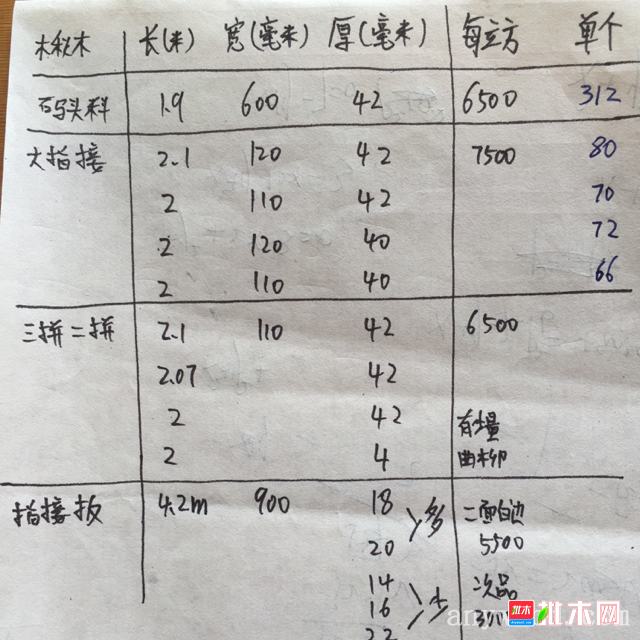 木秋木 长(米) 宽(毫米) 厚(毫米) 每立方 单个
码头料 1.9 600 42 6500 312
大指接 2.1 120 42 7500 80
2 110 42 70
2 120 40 72
2 110 40 66
三拼二拼 2.1 110 42 6500
2.07 42
2 42 有量
2 4 曲柳
指接板 4.2m 900 18 多 二面白边
20 5500
14 少 次品
16
22
批木 批木网